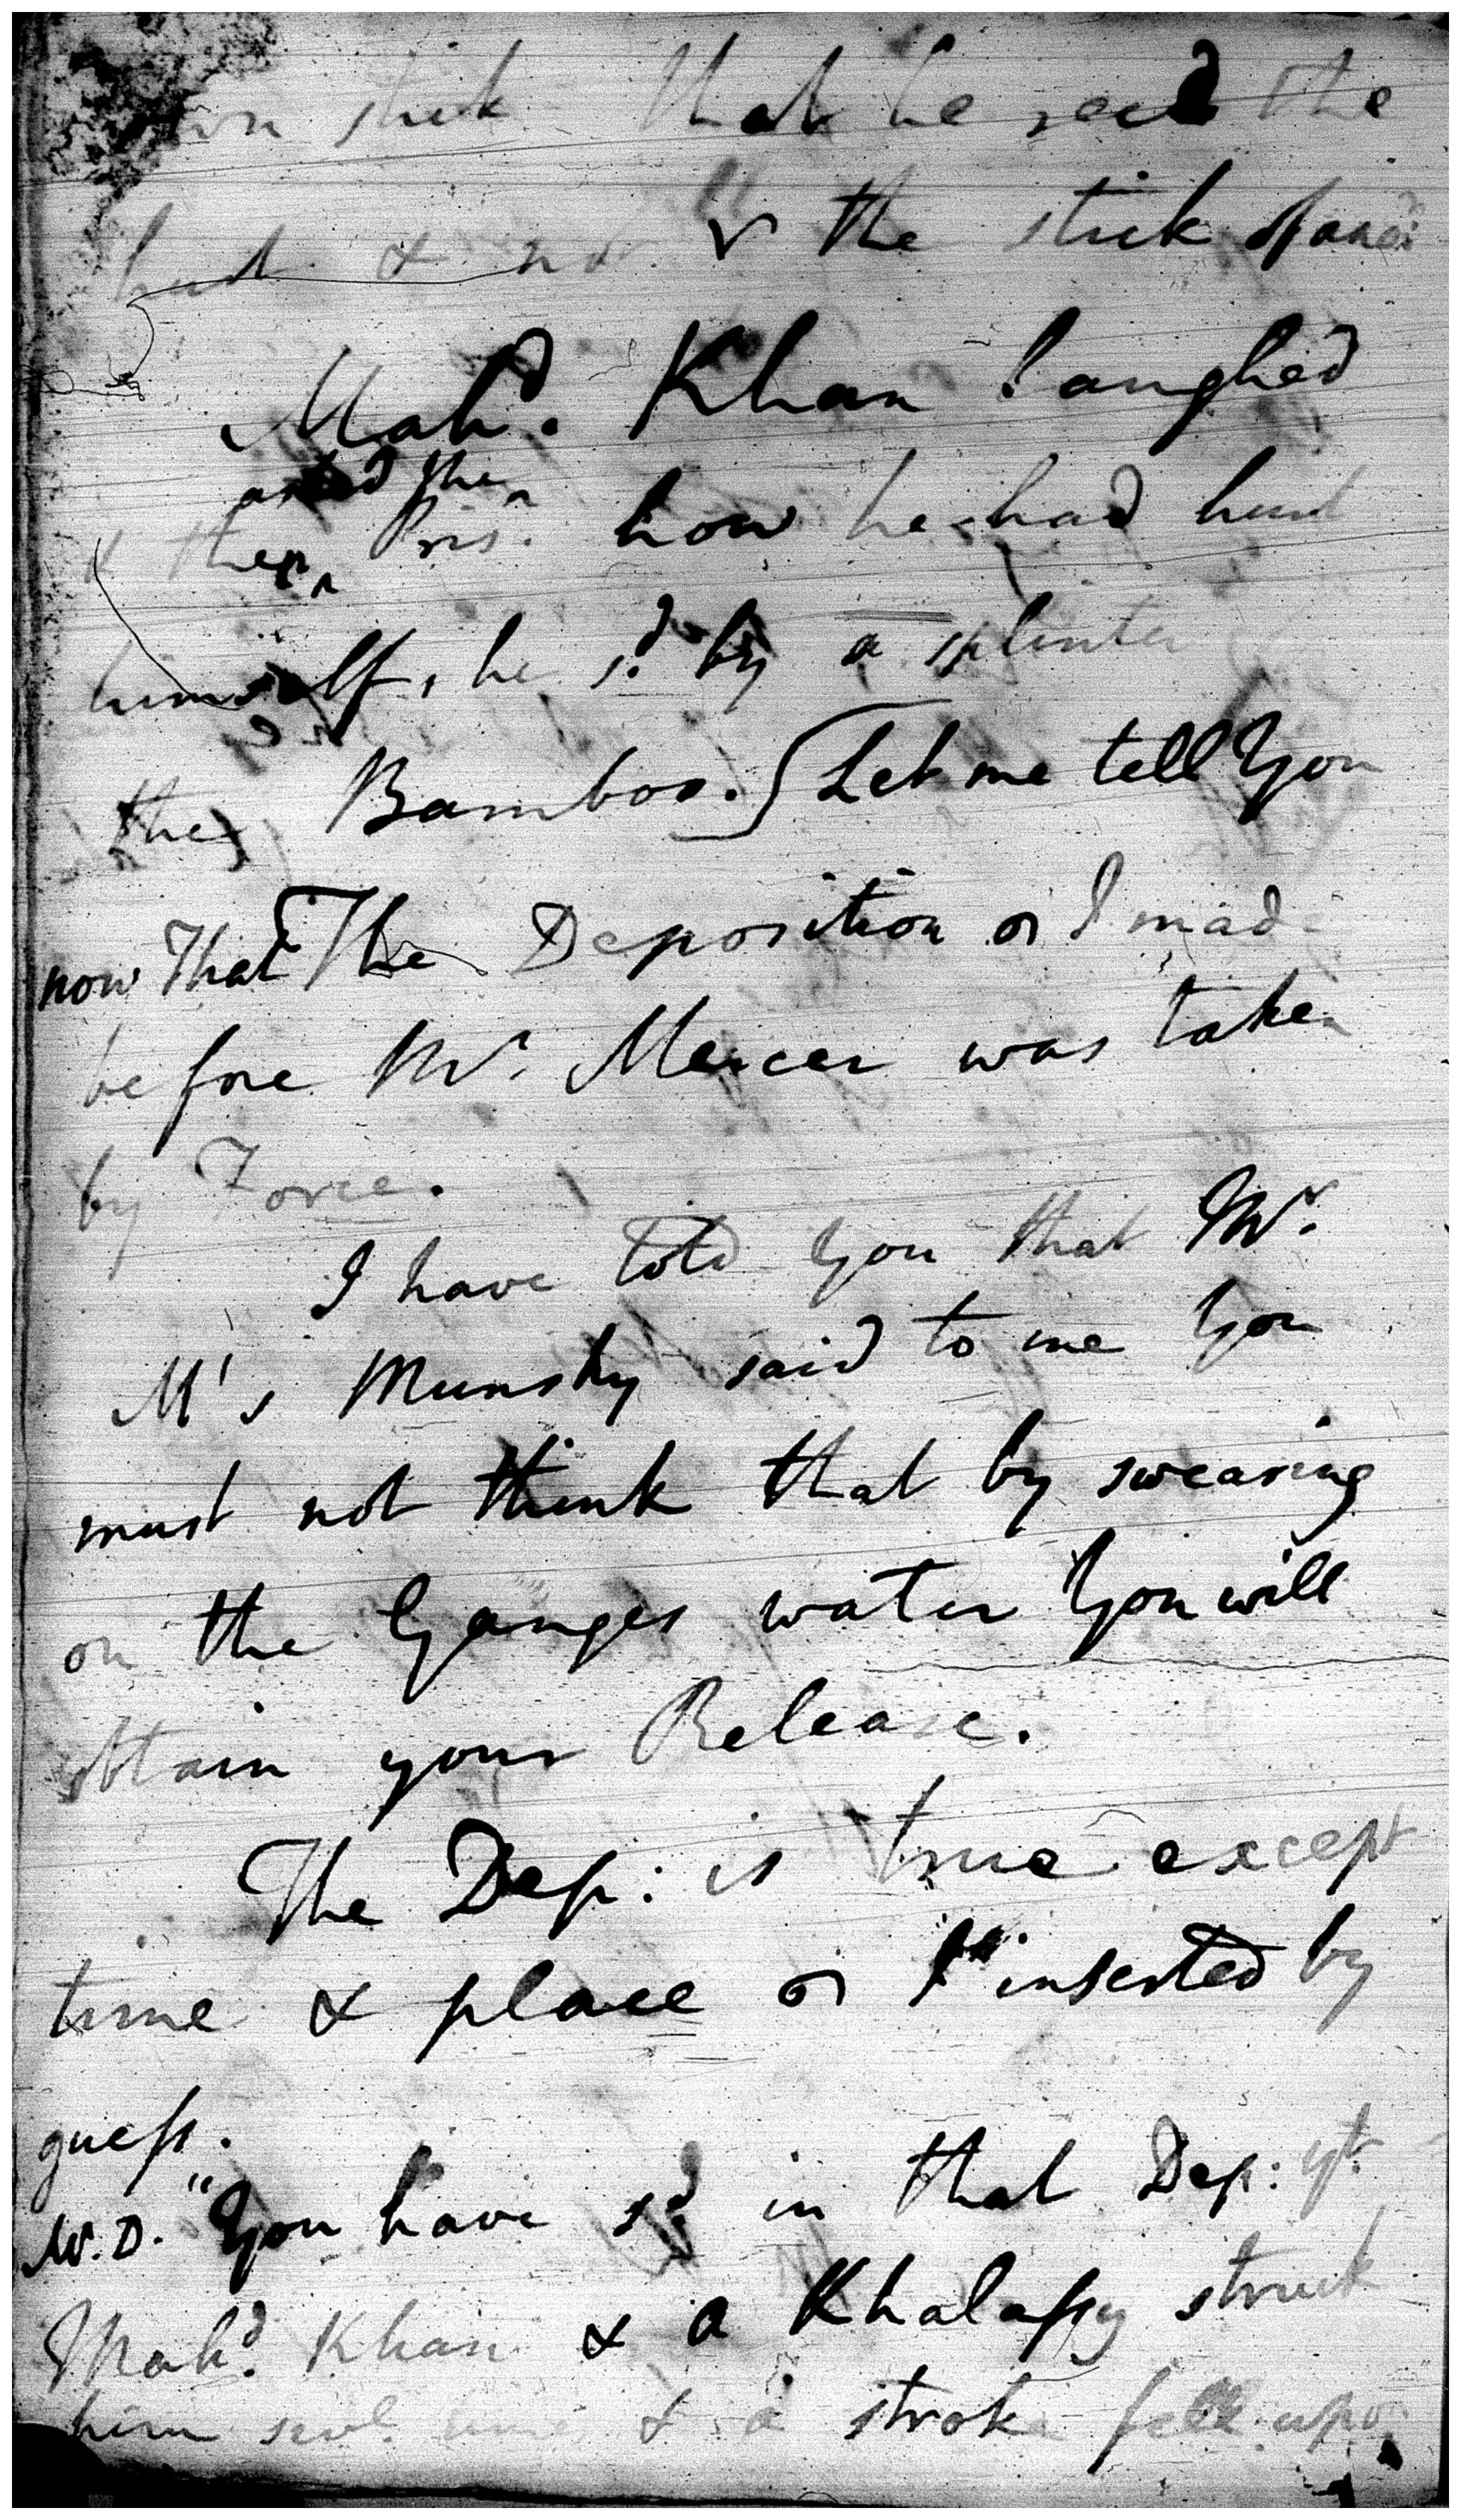 own stick that he seized the
hurt & not the stick
Mahd. Khan laughed
asked the
& then Pris. how he had hurt
himself, he sd. by a splinter
the Bamboo. Let me tell You
now That The Deposition I made
before Mr. Mercer was taken
by Force.
I have told You that Mr.
M's Munshy said to me You
must not think that by swearing
on the Ganges water You will
obtain your Release.
The Dep: is true except
time & place I inserted by
guess.
M.D. "You have sd. in that Dep: yt.
Mahd. Khan & a Khalassy struck
him sevl. times & a stroke fell upon